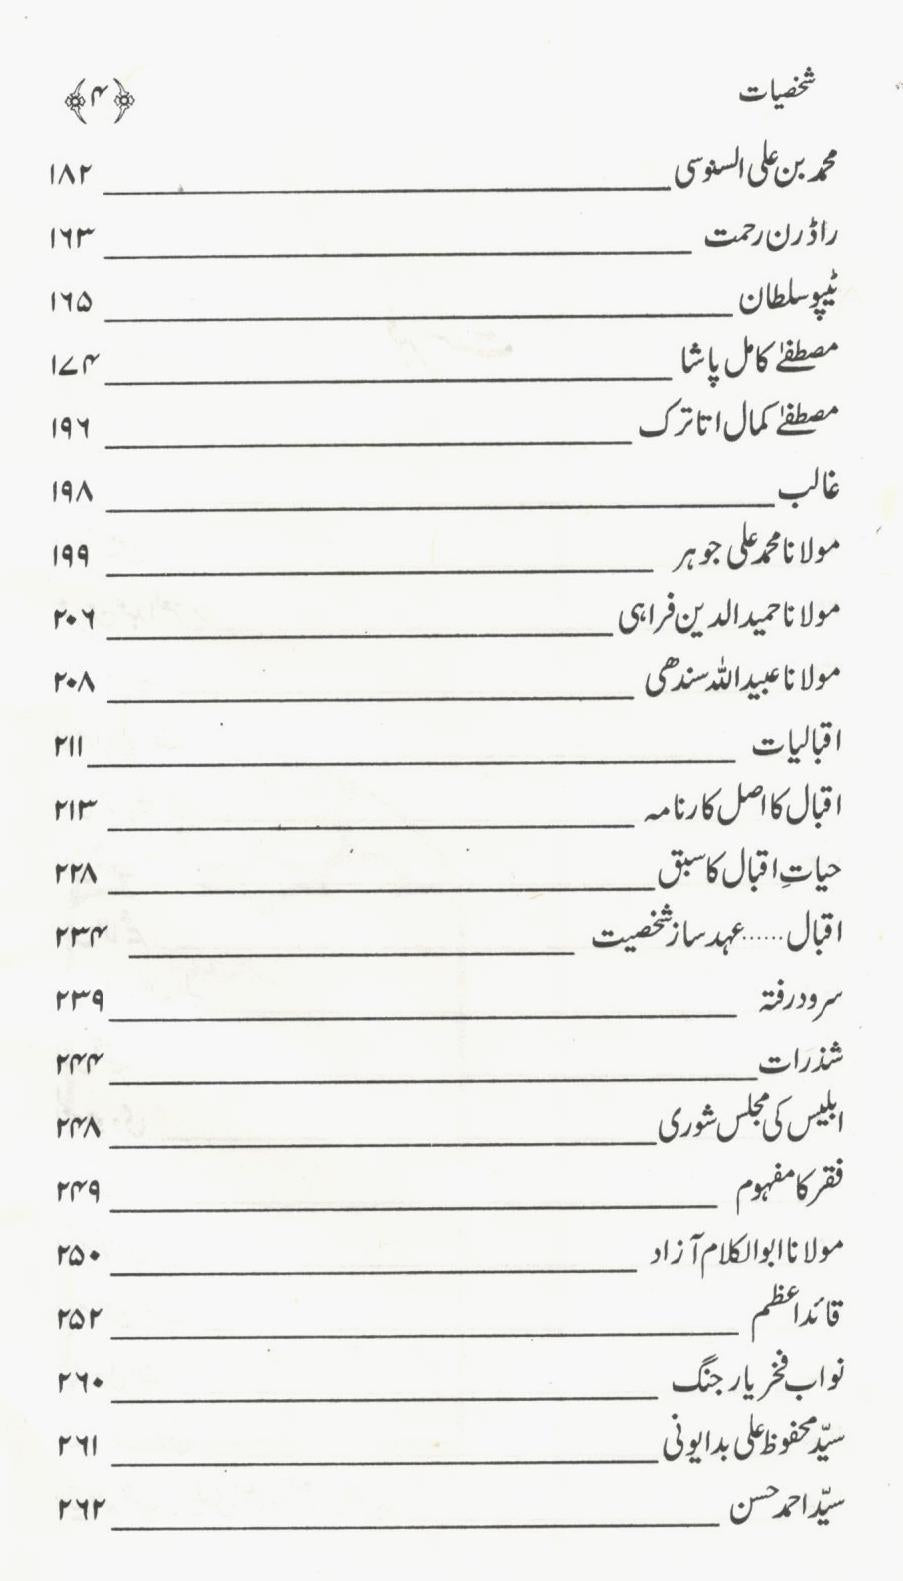 شخصیات ﴿۴﴾
محمد بن علی السنوسی ۱۸۲
راڈرن رحمت ۱۶۳
ٹیپو سلطان ۱۶۵
مصطفےٰ کامل پاشا ۱۷۴
مصطفےٰ کمال اتاترک ۱۹۶
غالب ۱۹۸
مولانا محمد علی جوہر ۱۹۹
مولانا حمید الدین فراہی ۲۰۶
مولانا عبید اللہ سندھی ۲۰۸
اقبالیات ۲۱۱
اقبال کا اصل کارنامہ ۲۱۳
حیاتِ اقبال کا سبق ۲۲۸
اقبال......عہد ساز شخصیت ۲۳۴
سرود رفتہ ۲۳۹
شذرات ۲۴۴
ابلیس کی مجلس شوری ۲۴۸
فقر کا مفہوم ۲۴۹
مولانا ابوالکلام آزاد ۲۵۰
قائد اعظم ۲۵۲
نواب فخر یار جنگ ۲۶۰
سیّد محفوظ علی بدایونی ۲۶۱
سیّد احمد حسن ۲۶۲